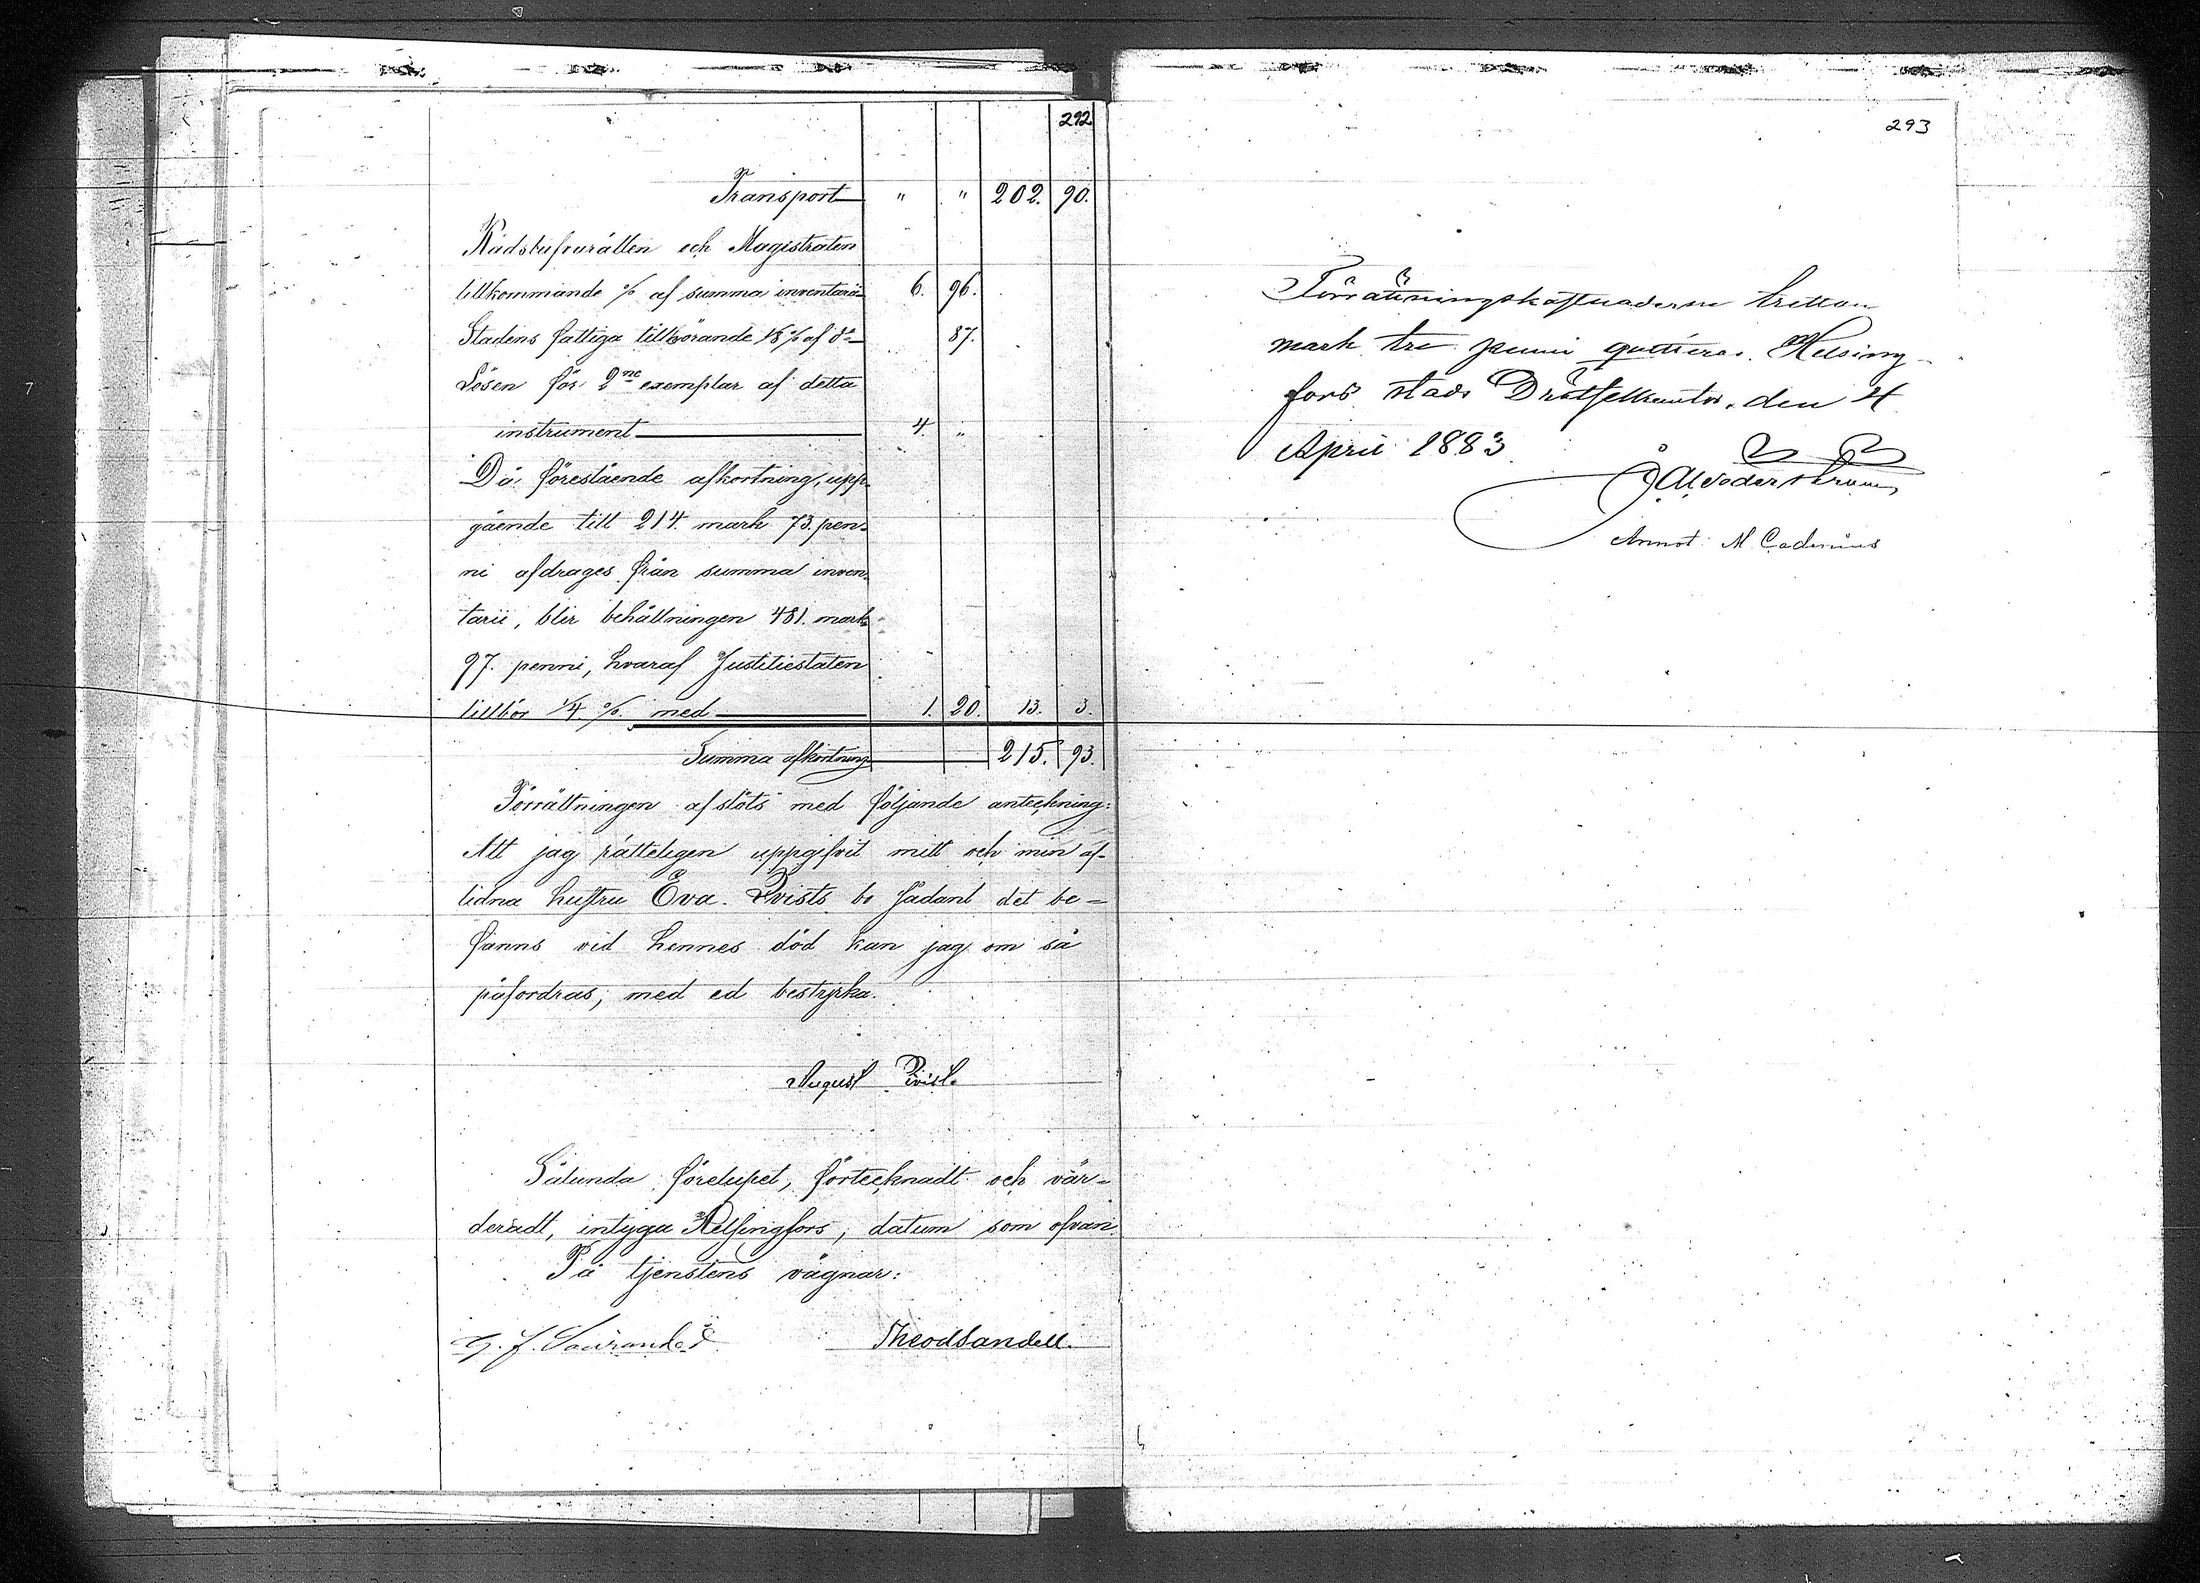 292
Transport " " 202. 90.
Rådstufvurätten och Magistraten
tillkommande % af summa inventarii 6. 96.
Stadens fattiga tillhörande 1/8 % af do 87.
Lösen för 2ne exemplar af detta
instrument 4. "
Då förestående afkortning, upp-
gående till 214. mark 73. pen-
ni afdrages från summa inven-
tarii, blir behållningen 481. mark
97. penni, hvaraf Justitiestaten
tillhör 1/4 %. med 1. 20. 13. 3.
Summa afkortning 215. 93.
Förrättningen afslöts med följande anteckning:
Att jag rätteligen uppgifvit mitt och min af-
lidna hustru Eva Qvists bo sådant det be-
fanns vid hennes död kan jag om så
påfordras, med ed bestyrka.
August Qvist.
Sålunda förelupet, förtecknadt och vär-
deradt, intyga Helsingfors, datum som ofvan.
På tjenstens vägnar:
Theod Sandell.
293
Förrättningskostnaderne tretton
mark tre penni qvitteras. Helsing-
fors stads Drätselkontor, den 4
April 1883.
Annot. M Cadenius